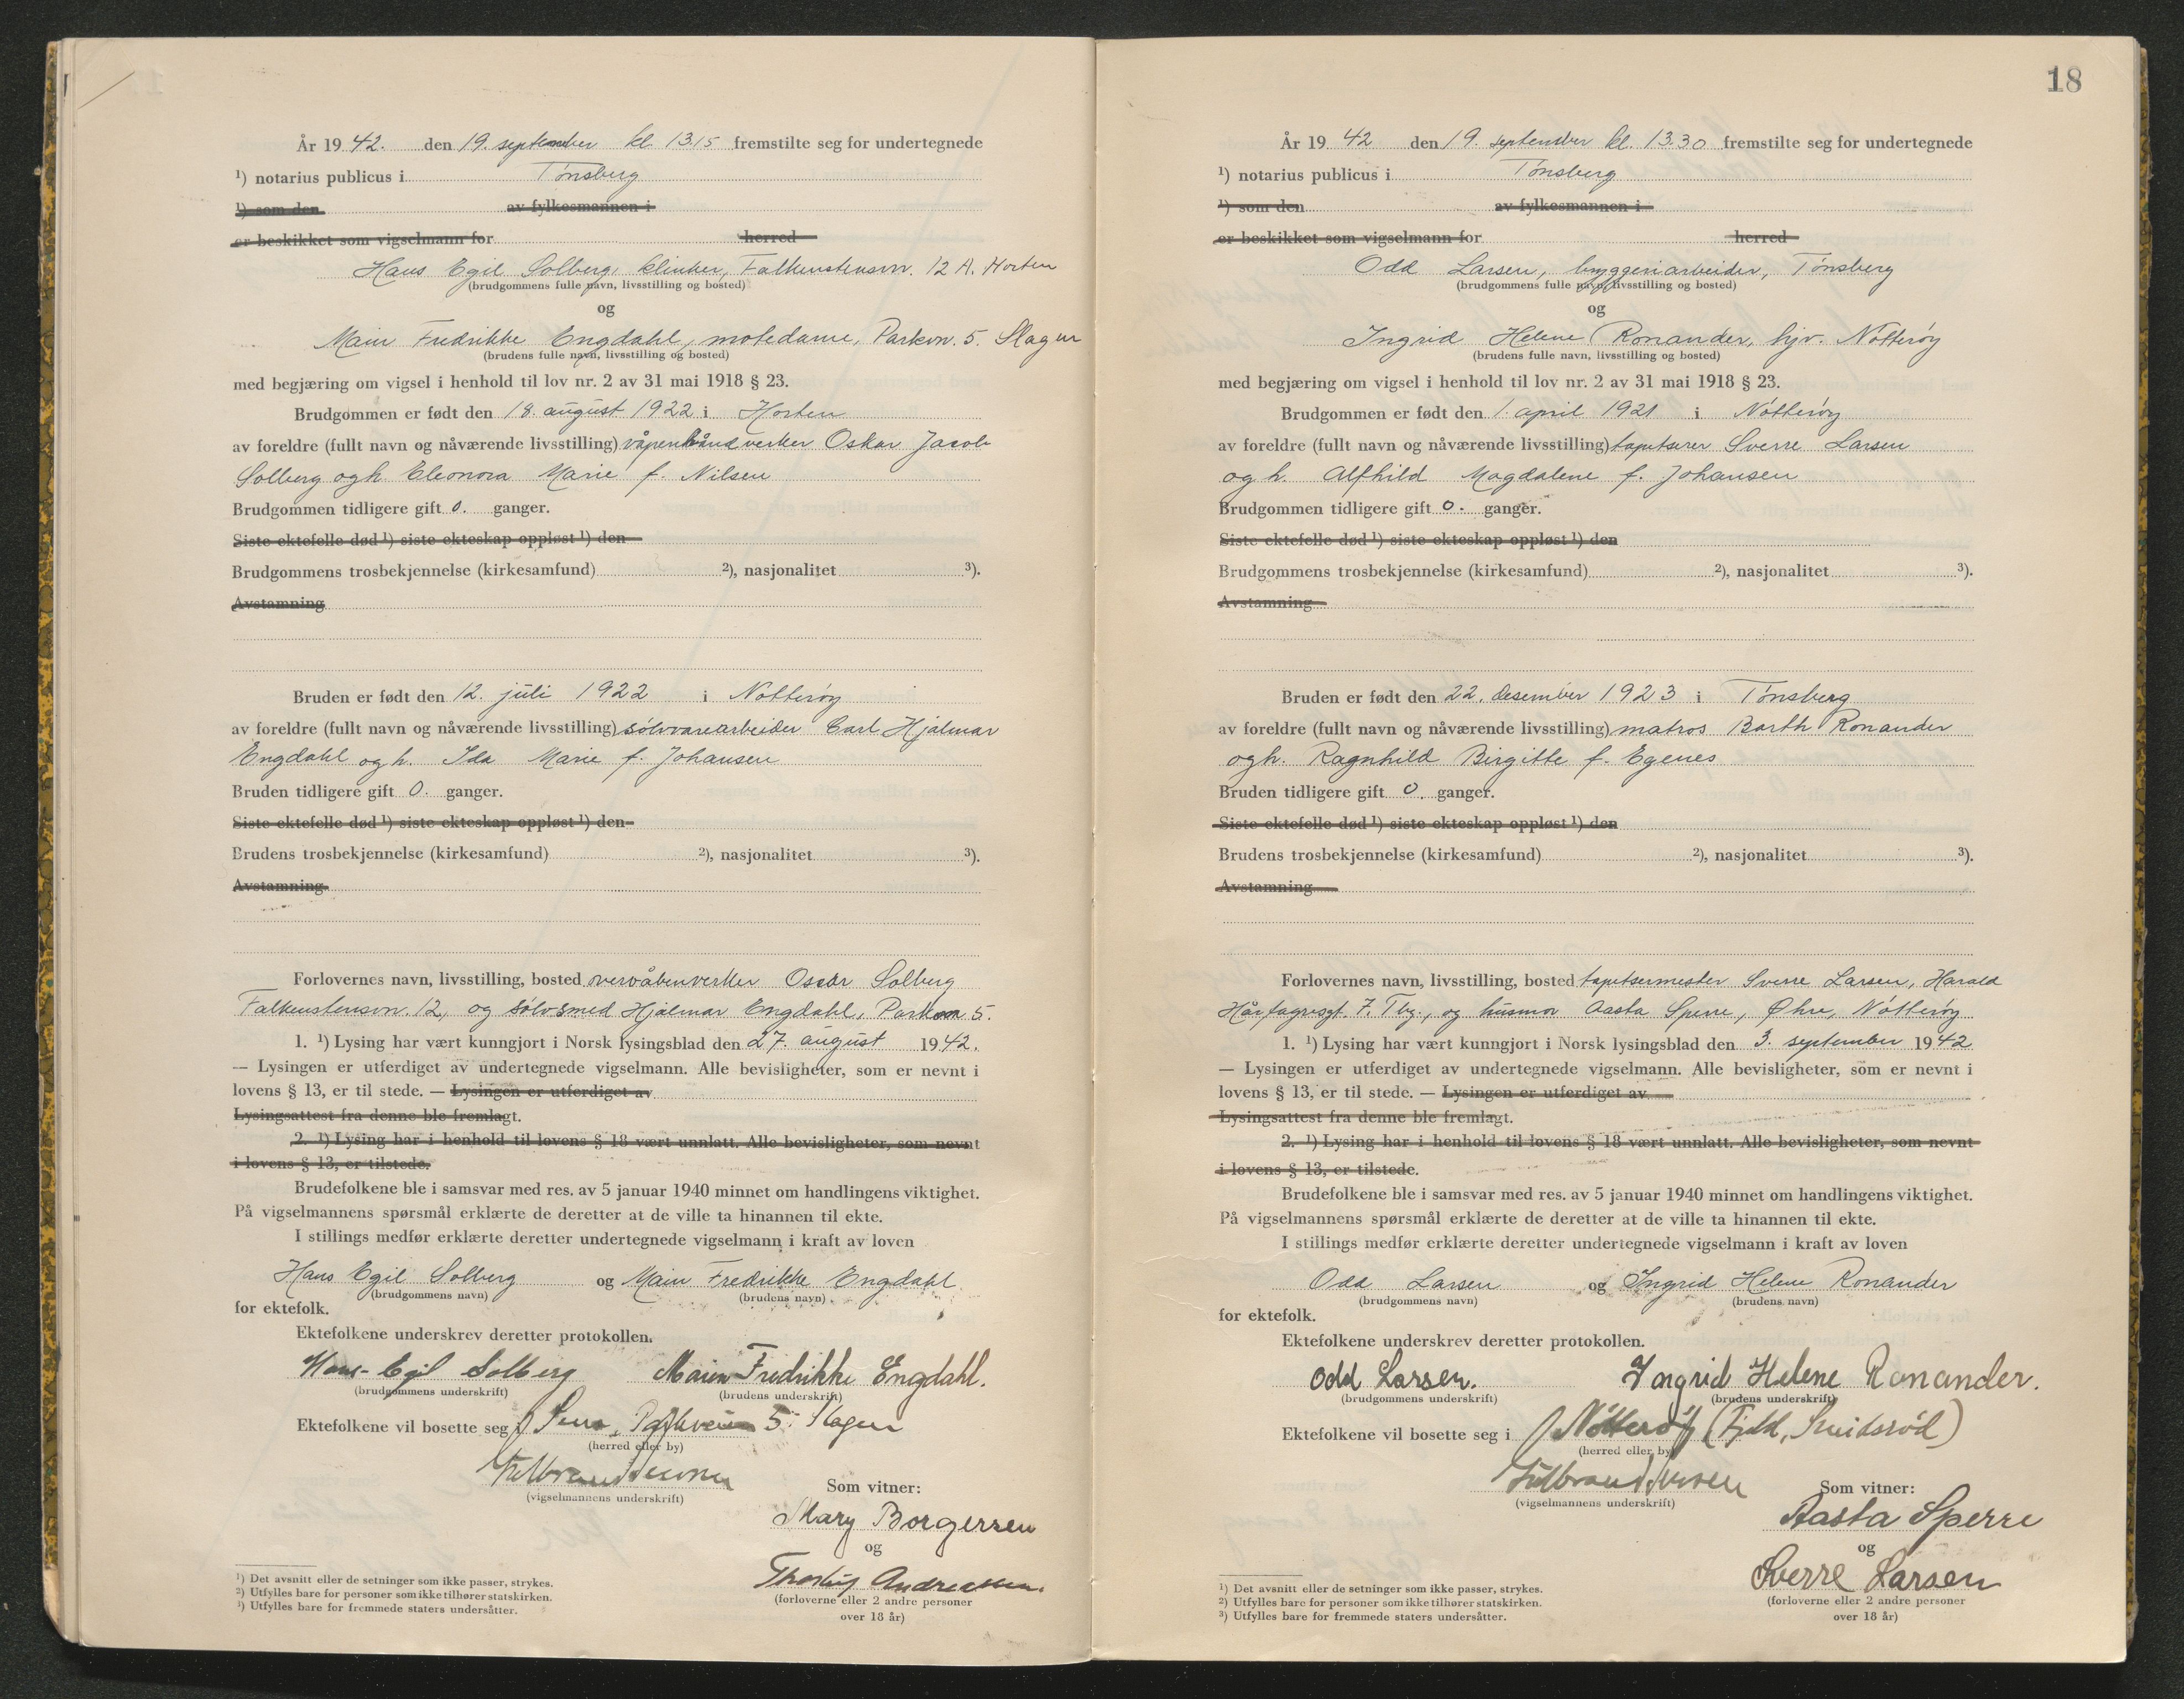 År 1942. den 19. september kl. 13.15 fremstilte seg for undertegnede
¹) notarius publicus i Tønsberg
¹) som den av fylkesmannen i
er beskikket som vigselmann for herred
Hans Egil Solberg, klinker, Falkenstensvn. 12 A. Horten
(brudgommens fulle navn, livsstilling og bosted)
og
Main Fredrikke Engdahl, motedame, Parkvn. 5. Slagen
(brudens fulle navn, livsstilling og bosted)
med begjæring om vigsel i henhold til lov nr. 2 av 31 mai 1918 § 23.
Brudgommen er født den 18. august 1922 i Horten
av foreldre (fullt navn og nåværende livsstilling) våpenhåndverker Oskar Jacob
Solberg og h. Eleonora Marie f. Nilsen
Brudgommen tidligere gift 0. ganger.
Siste ektefelle død ¹) siste ekteskap oppløst ¹) den
Brudgommens trosbekjennelse (kirkesamfund) ²), nasjonalitet ³).
Avstamning
Bruden er født den 12. juli 1922 i Nøtterøy
av foreldre (fullt navn og nåværende livsstilling) sølvvarearbeider Carl Hjalmar
Engdahl og h. Ida Marie f. Johansen
Bruden tidligere gift 0. ganger.
Siste ektefelle død ¹) siste ekteskap oppløst ¹) den
Brudens trosbekjennelse (kirkesamfund) ²), nasjonalitet ³).
Avstamning
Forlovernes navn, livsstilling, bosted Oscar Solberg
Falkenstensvn. 12, og sølvsmed Hjalmar Engdahl, Parkvn 5.
1. ¹) Lysing har vært kunngjort i Norsk lysingsblad den 27. august 1942.
— Lysingen er utferdiget av undertegnede vigselmann. Alle bevisligheter, som er nevnt i
lovens § 13, er til stede. — Lysingen er utferdiget av
Lysingsattest fra denne ble fremlagt.
2. ¹) Lysing har i henhold til lovens § 18 vært unnlatt. Alle bevisligheter, som nevnt
i lovens § 13, er tilstede.
Brudefolkene ble i samsvar med res. av 5 januar 1940 minnet om handlingens viktighet.
På vigselmannens spørsmål erklærte de deretter at de ville ta hinannen til ekte.
I stillings medfør erklærte deretter undertegnede vigselmann i kraft av loven
Hans Egil Solberg og Main Fredrikke Engdahl
(brudgommens navn) (brudens navn)
for ektefolk.
Ektefolkene underskrev deretter protokollen.
Hans Egil Solberg Main Fredrikke Engdahl.
(brudgommens underskrift) (brudens underskrift)
Ektefolkene vil bosette seg i Sem, Parkveien 5. Slagen
(herred eller by)
(vigselmannens underskrift)
Som vitner:
Mary Borgersen
og
Andreassen.
(forloverne eller 2 andre personer
over 18 år)
¹) Det avsnitt eller de setninger som ikke passer, strykes.
²) Utfylles bare for personer som ikke tilhører statskirken.
³) Utfylles bare for fremmede staters undersåtter.
18
År 1942 den 19. september kl. 13.30 fremstilte seg for undertegnede
¹) notarius publicus i Tønsberg
¹) som den av fylkesmannen i
er beskikket som vigselmann for herred
Odd Larsen, bryggeriarbeider, Tønsberg
(brudgommens fulle navn, livsstilling og bosted)
og
Ingrid Helene Ronander, hjv. Nøtterøy
(brudens fulle navn, livsstilling og bosted)
med begjæring om vigsel i henhold til lov nr. 2 av 31 mai 1918 § 23.
Brudgommen er født den 1. april 1921 i Nøtterøy
av foreldre (fullt navn og nåværende livsstilling) tapetserer Sverre Larsen
og h. Alfhild Magdalene f. Johansen
Brudgommen tidligere gift 0. ganger.
Siste ektefelle død ¹) siste ekteskap oppløst ¹) den
Brudgommens trosbekjennelse (kirkesamfund) ²), nasjonalitet ³).
Avstamning
Bruden er født den 22. desember 1923 i Tønsberg
av foreldre (fullt navn og nåværende livsstilling) matros Barth Ronander
og h. Ragnhild Birgitte f. Egenes
Bruden tidligere gift 0. ganger.
Siste ektefelle død ¹) siste ekteskap oppløst ¹) den
Brudens trosbekjennelse (kirkesamfund) ²), nasjonalitet ³).
Avstamning
Forlovernes navn, livsstilling, bosted tapetsermester Sverre Larsen, Harald
Hårfagresgt. 7. Tbg., og husmor Aasta Sperre, Øhre, Nøtterøy
1. ¹) Lysing har vært kunngjort i Norsk lysingsblad den 3. september 1942
— Lysingen er utferdiget av undertegnede vigselmann. Alle bevisligheter, som er nevnt i
lovens § 13, er til stede. — Lysingen er utferdiget av
Lysingsattest fra denne ble fremlagt.
2. ¹) Lysing har i henhold til lovens § 18 vært unnlatt. Alle bevisligheter, som nevnt
i lovens § 13, er tilstede.
Brudefolkene ble i samsvar med res. av 5 januar 1940 minnet om handlingens viktighet.
På vigselmannens spørsmål erklærte de deretter at de ville ta hinannen til ekte.
I stillings medfør erklærte deretter undertegnede vigselmann i kraft av loven
Odd Larsen og Ingrid Helene Ronander
(brudgommens navn) (brudens navn)
for ektefolk.
Ektefolkene underskrev deretter protokollen.
Odd Larsen. Ingrid Helene Ronander.
(brudgommens underskrift) (brudens underskrift)
Ektefolkene vil bosette seg i Nøtterøy (Smidsrød)
(herred eller by)
(vigselmannens underskrift)
Som vitner:
Aasta Sperre
og
Sverre Larsen
(forloverne eller 2 andre personer
over 18 år)
¹) Det avsnitt eller de setninger som ikke passer, strykes.
²) Utfylles bare for personer som ikke tilhører statskirken.
³) Utfylles bare for fremmede staters undersåtter.